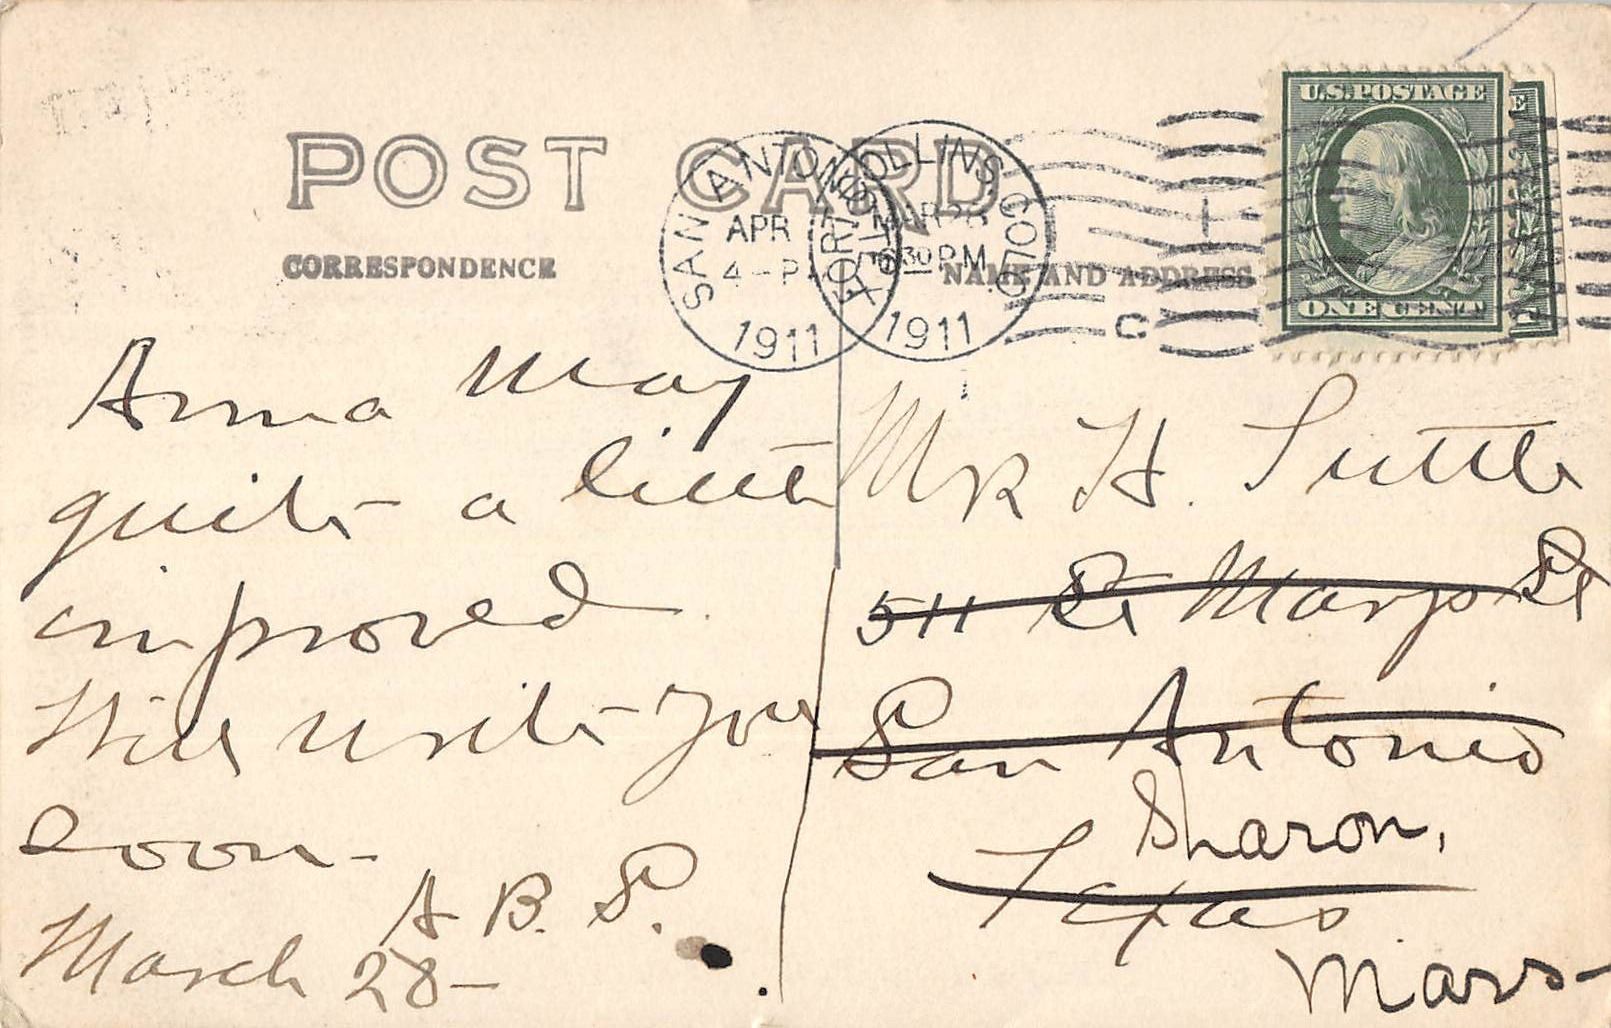 POST CARD
CORRESPONDENCE
NAME AND ADDRESS
SAN ANTONIO TEX
APR
4 - P
1911
FORT COLLINS, COLO.
MAR 28
30 PM
1911
C
U.S. POSTAGE
ONE CENT
Anna May
quite a little
improved.
Will write you
soon -
A B. S.
March 28 -
Mr H. Suttle
511 St Marys St
San Antonio
Sharon,
Texas
Mass-